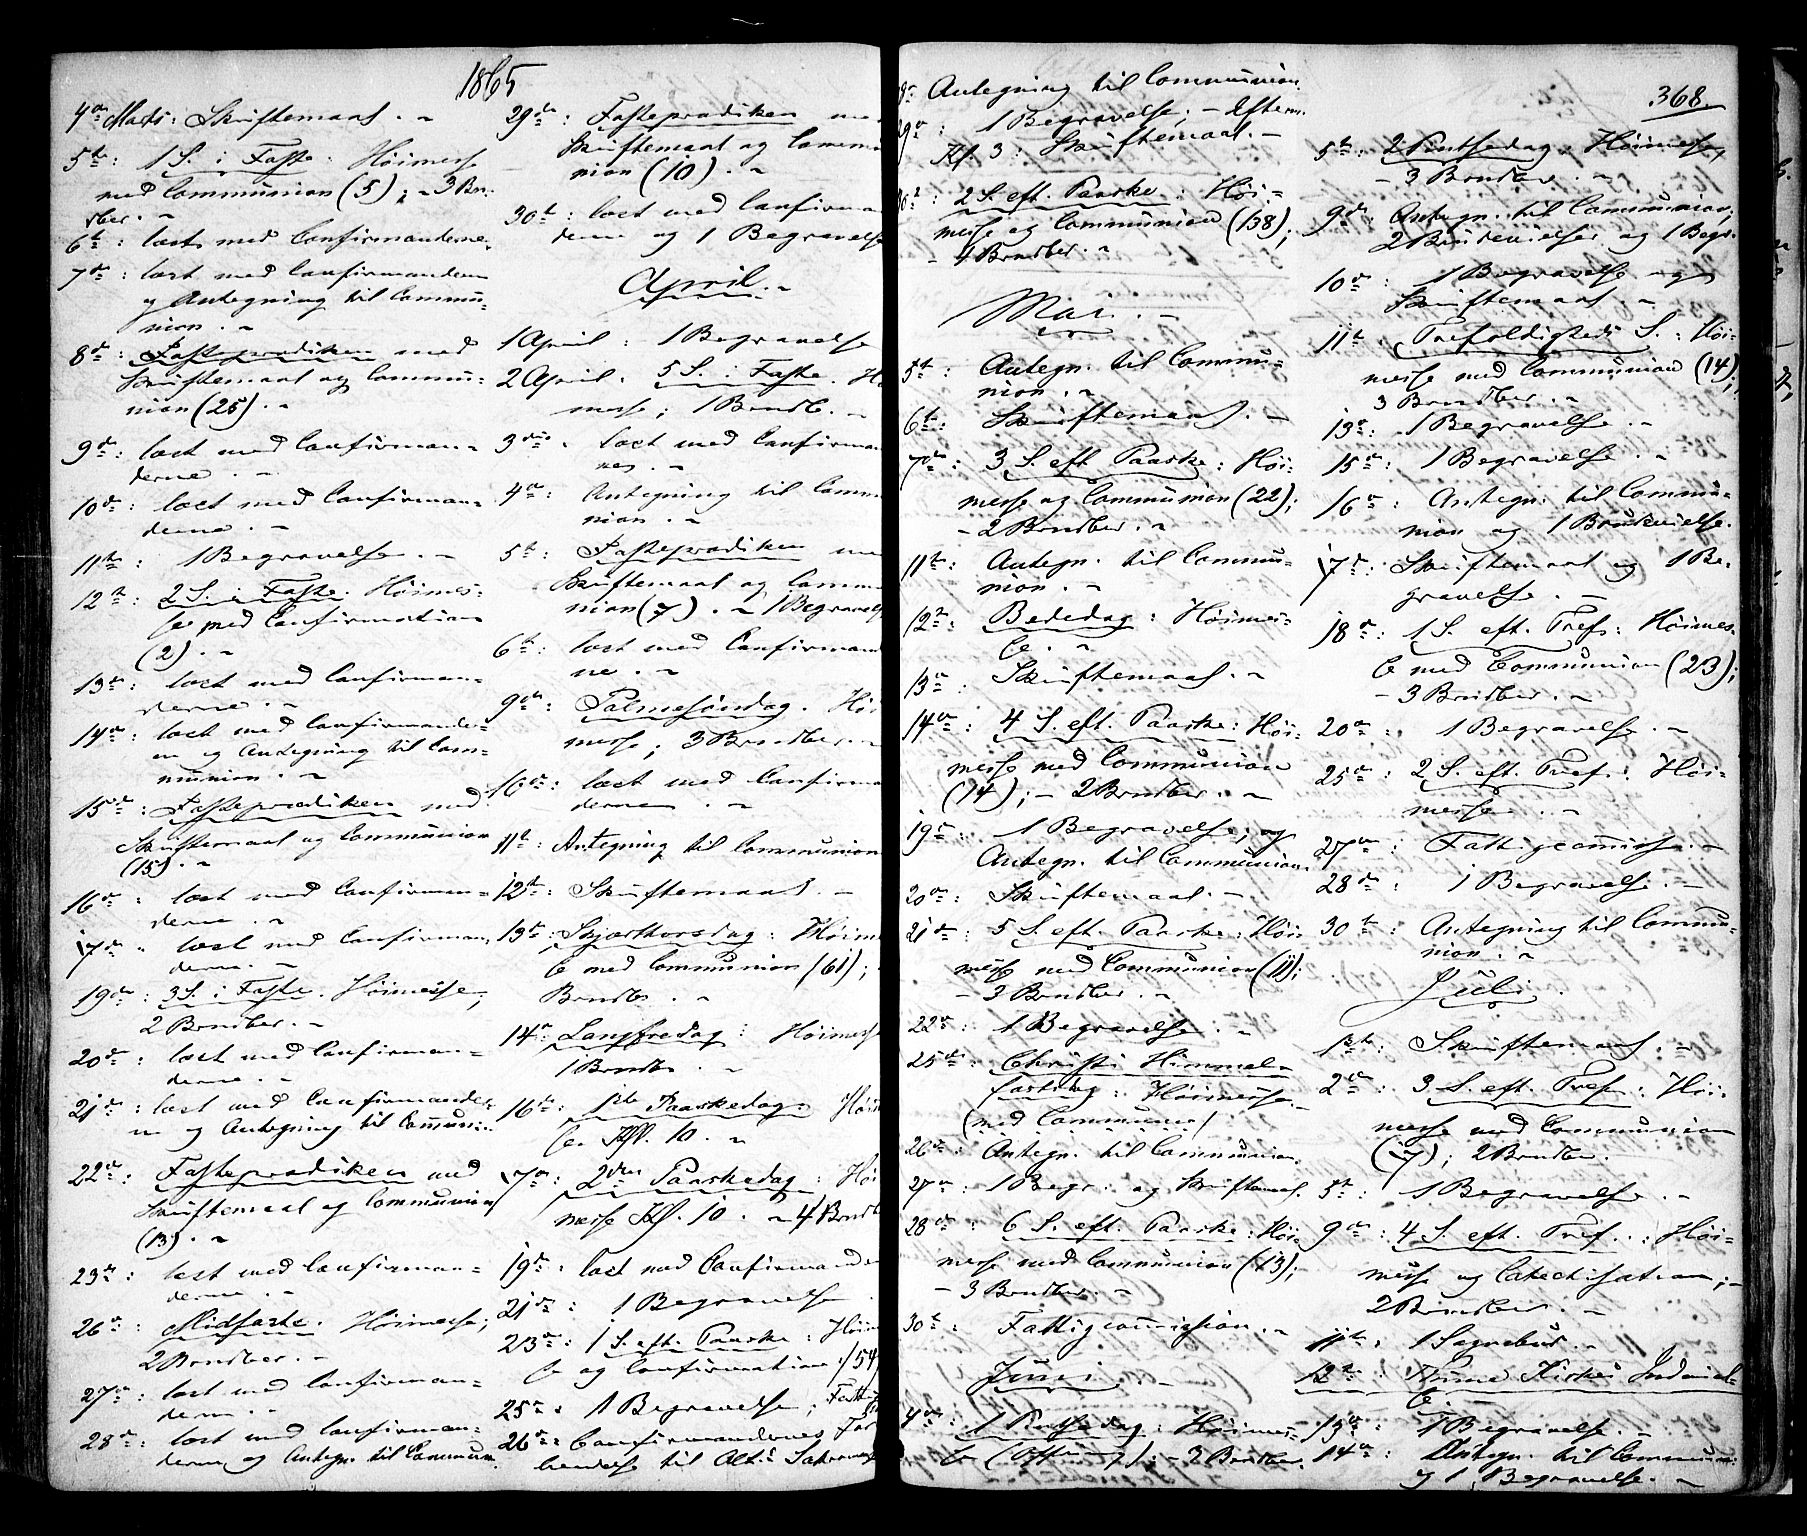 1865
4de Marts: Skriftemaal. –
5te: 1 S. i Faste: Høimesse
med Communion (5); – 3 Brn.
dber. –
6te: læst med Confirmanderne.
7de: læst med Confirmandern
og Antegning til Commu-
nion. –
8de: Fasteprædiken med
Skriftemaal og Commu-
nion (25). –
9de: læst med Confirman-
derne. –
10de: læst med Confirman-
derne. –
11te: 1 Begravelse. –
12te: 2 S. i Faste: Høimes-
se med Confirmation
(2). –
13de: læst med Confirman-
derne. –
14de: læst med Confirmander-
ne og Antegning til Com-
munion. –
15de: Fasteprædiken med
Skriftemaal og Communion
(15). –
16de: læst med Confirman-
derne. –
17de: læst med Confirman-
derne. –
19de: 3 S. i Faste. Høimesse;
2 Brndber. –
20de: læst med Confirman-
derne. –
21de: læst med Confirmander-
ne og Antegning til Com̄uni-
22de: Fasteprædiken med
Skriftemaal og Communion
(13). –
23de: læst med Confirman-
derne. –
26de: Midfaste. Høimesse;
2 Brndber. –
27de: læst med Confirman-
derne. –
28de: læst med Confirman-
derne og Antegn. til Commun.
29de: Fasteprædiken me
Skriftemaal og Commu
nion (10). –
30te: læst med Confirman
derne og 1 Begravelse
April. –
1 April: 1 Begravelse
2 April: 5 S. i Faste. H
messe; 1 Brndb. –
3die: læst med Confirma
ne. –
4de: Antegning til Comm
nion. –
5te: Fasteprædiken me
Skriftemaal og Comm
nion (7). – 1 Begravels
6te: læst med Confirmand
ne. –
9de: Palmesøndag. Høi
messe; 3 Brndber. –
10de: læst med Confirma
derne. –
11te: Antegning til Communion
12te: Skriftemaal. –
13de: Skjærthorsdag: Høimes
se med Communion (61);
Brndb. –
14de: Langfredag: Høimess
1 Brndb. –
16te: 1ste Paaskedag: Høim
se Kl. 10. –
17de: 2den Paaskedag: Høi
messe Kl. 10. – 4 Brndb
19de: læst med Confirmander
21de: 1 Begravelse.
23de: 1 S. eft. Paaske: Høim
se og Confirmation (54
25de: 1 Begravelse; Fattig
26de: Confirmandernes For
beredelse til Alt: Sakrame
Antegning til Communion.
29de: 1 Begravelse; – Efterm.
Kl. 3: Skriftemaal. –
30te: 2 S. eft. Paaske: Høi-
messe og Communion (38);
– 4 Brndber. –
Mai. –
5te: Antegn. til Commu-
nion. –
6te: Skriftemaal. –
7de: 3 S. eft. Paaske: Høi-
messe og Communion (22);
– 2 Brndber. –
11te: Antegn. til Commu-
nion. –
12te: Bededag: Høimes-
se. –
13de: Skriftemaal. –
14de: 4 S. eft. Paaske: Høi-
messe med Communion
(14); – 2 Brndber. –
19de: 1 Begravelse; og
Antegn. til Communion.
20de: Skriftemaal. –
21de: 5 S. eft. Paaske: Høi-
messe med Communion (11);
– 3 Brndber. –
22de: 1 Begravelse. –
25de: Christi Himmel-
fartsdag: Høimesse. –
(med Communion)
26de: Antegn. til Communion.
27de: 1 Begr: og Skriftemaal.
28de: 6 S. eft. Paaske: Høi-
messe med Communion (13);
– 3 Brndber. –
30te: Fattigcommission. –
Juni. –
4de: 1 Pintsedag: Høimes-
se (Offring); – 2 Brndber.
368
5te: 2 Pintsedag. Høimesse;
– 3 Brndber. –
9de: Antegn. til Communion;
2 Brudevielser og 1 Begr.
10de: 1 Begravelse og
Skriftemaal. –
11te: Trefoldigheds S.: Høi-
messe med Communion (14);
3 Brndber. –
13de: 1 Begravelse. –
15de: 1 Begravelse. –
16de: Antegn: til Commu-
nion og 1 Brudevielse.
17de: Skriftemaal og 1 Be-
gravelse. –
18de: 1 S. eft. Tref: Høimes-
se med Communion (23);
– 3 Brndber. –
20de: 1 Begravelse. –
25de: 2 S. eft. Tref.: Høi-
messe. –
27de: Fattigcom̄iss. –
28de: 1 Begravelse. –
30te: Antegning til Commu-
nion. –
Juli.
1ste: Skriftemaal. –
2den: 3 S. eft. Tref: Høi-
messe med Communion
(17); 2 Brndber.
5te: 1 Begravelse. –
9de: 4 S. eft. Tref.: Høi-
messe og Catechisation; –
2 Brndber. –
11te: 1 Sognebud. –
12te: Kirkes Indviel-
se. –
13de: 1 Begravelse. –
14de: Antegn. til Commun:
og 1 Begravelse. –